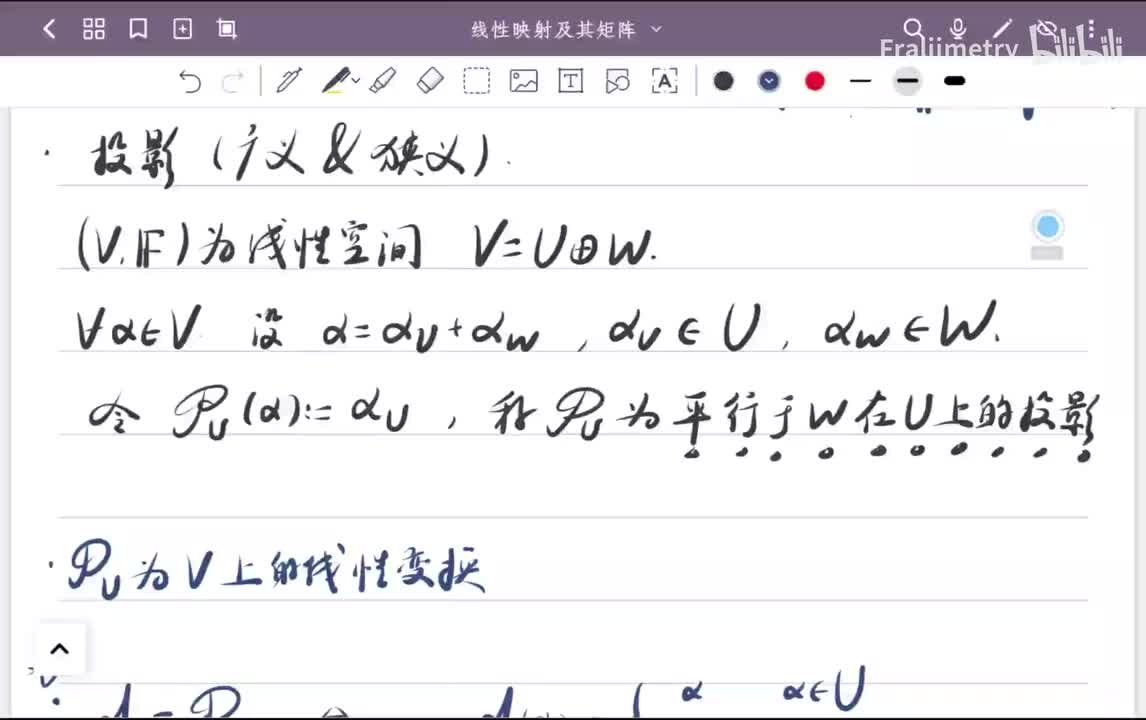 线性映射及其矩阵
Fraljimetry bilibili
· 投影 (广义 & 狭义).
(V, 𝔽) 为线性空间 V = U ⊕ W.
∀α∈V 设 α = α_U + α_W , α_U ∈ U , α_W ∈ W.
令 𝒫_U(α) := α_U , 称 𝒫_U 为平行于W在U上的投影
· 𝒫_U 为 V 上的线性变换
α α∈U